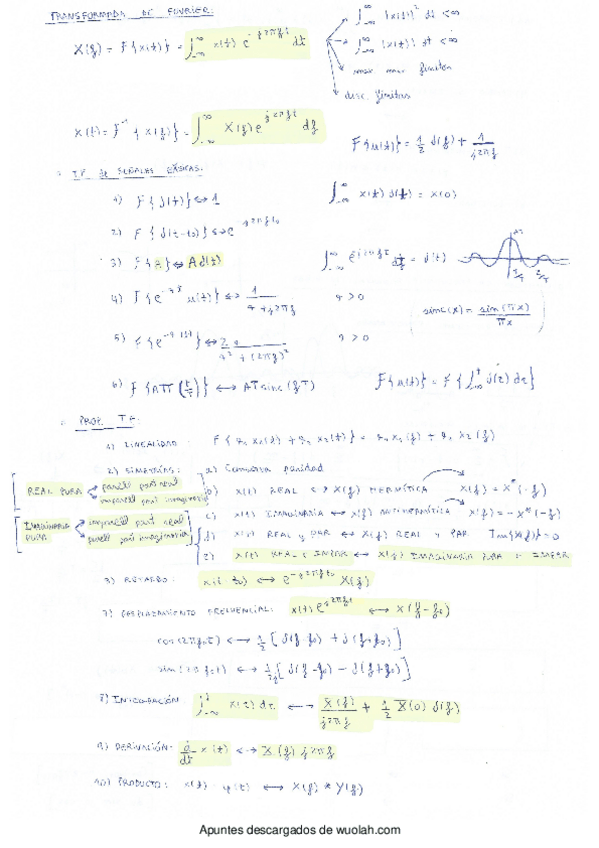 TRANSFORMADA DE FOURIER:
X(f) = F{x(t)} = ∫_{-∞}^{∞} x(t) e^{-j2πft} dt
∫_{-∞}^{∞} |x(t)|² dt < ∞
∫_{-∞}^{∞} |x(t)| dt < ∞
max. min. finitos
disc. finitas
x(t) = F⁻¹{X(f)} = ∫_{-∞}^{∞} X(f) e^{j2πft} df
F{u(t)} = 1/2 δ(f) + 1/(j2πf)
T.F. DE SEÑALES BÁSICAS:
1) F{δ(t)} ↔ 1
∫_{-∞}^{∞} x(t) δ(t) = x(0)
2) F{δ(t-t0)} ↔ e^{-j2πft0}
3) F{A} ↔ Aδ(f)
∫_{-∞}^{∞} e^{j2πft} df = δ(t)
1/T 2/T
4) F{e^{-at} u(t)} ↔ 1/(a+j2πf) a > 0
sinc(x) = sin(πx)/(πx)
5) F{e^{-a|t|}} ↔ 2a/(a²+(2πf)²) a > 0
6) F{AΠ(t/T)} ↔ AT sinc(fT)
F{u(t)} = F{∫_{-∞}^{t} δ(τ) dτ}
PROP. T.F.:
1) LINEALIDAD: F{a1 x1(t) + a2 x2(t)} = a1 X1(f) + a2 X2(f)
2) SIMETRÍAS: a) Conserva paridad
REAL PURA
parell part real
imparell part imaginaria
b) x(t) REAL ↔ X(f) HERMÍTICA X(f) = X*(-f)
IMAGINARIA PURA
imparell part real
parell part imaginaria
c) x(t) IMAGINARIA ↔ X(f) ANTIHERMÍTICA X(f) = -X*(-f)
x(t) REAL y PAR ↔ X(f) REAL y PAR Im{X(f)}=0
x(t) REAL e IMPAR ↔ X(f) IMAGINARIA PURA e IMPAR
3) RETARDO: x(t-t0) ↔ e^{-j2πft0} X(f)
7) DESPLAZAMIENTO FRECUENCIAL: x(t) e^{j2πf0t} ↔ X(f-f0)
cos(2πf0t) ↔ 1/2 [δ(f-f0) + δ(f+f0)]
sin(2πf0t) ↔ 1/2j [δ(f-f0) - δ(f+f0)]
8) INTEGRACIÓN: ∫_{-∞}^{t} x(τ) dτ ↔ X(f)/(j2πf) + 1/2 X(0) δ(f)
9) DERIVACIÓN: d/dt x(t) ↔ X(f) j2πf
10) PRODUCTO: x(t) · y(t) ↔ X(f) * Y(f)
Apuntes descargados de wuolah.com